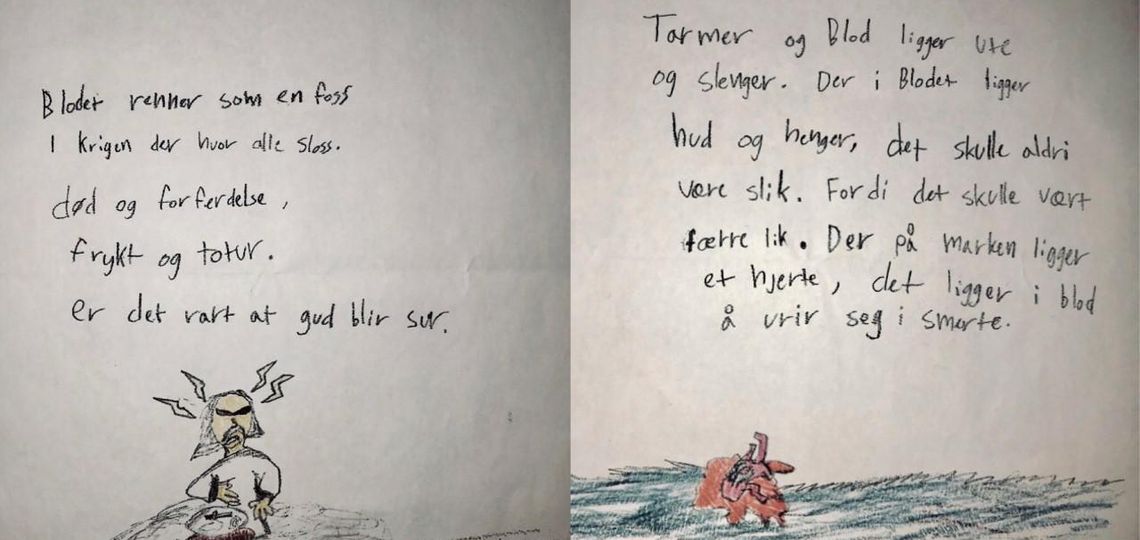 Blodet renner som en foss
I krigen der hvor alle sloss.
død og forferdelse,
frykt og totur.
er det rart at gud blir sur.
Tarmer og Blod ligger ute
og slenger. Der i Blodet ligger
hud og henger, det skulle aldri
være slik. Fordi det skulle vært
færre lik. Der på marken ligger
et hjerte, det ligger i blod
å vrir seg i smerte.